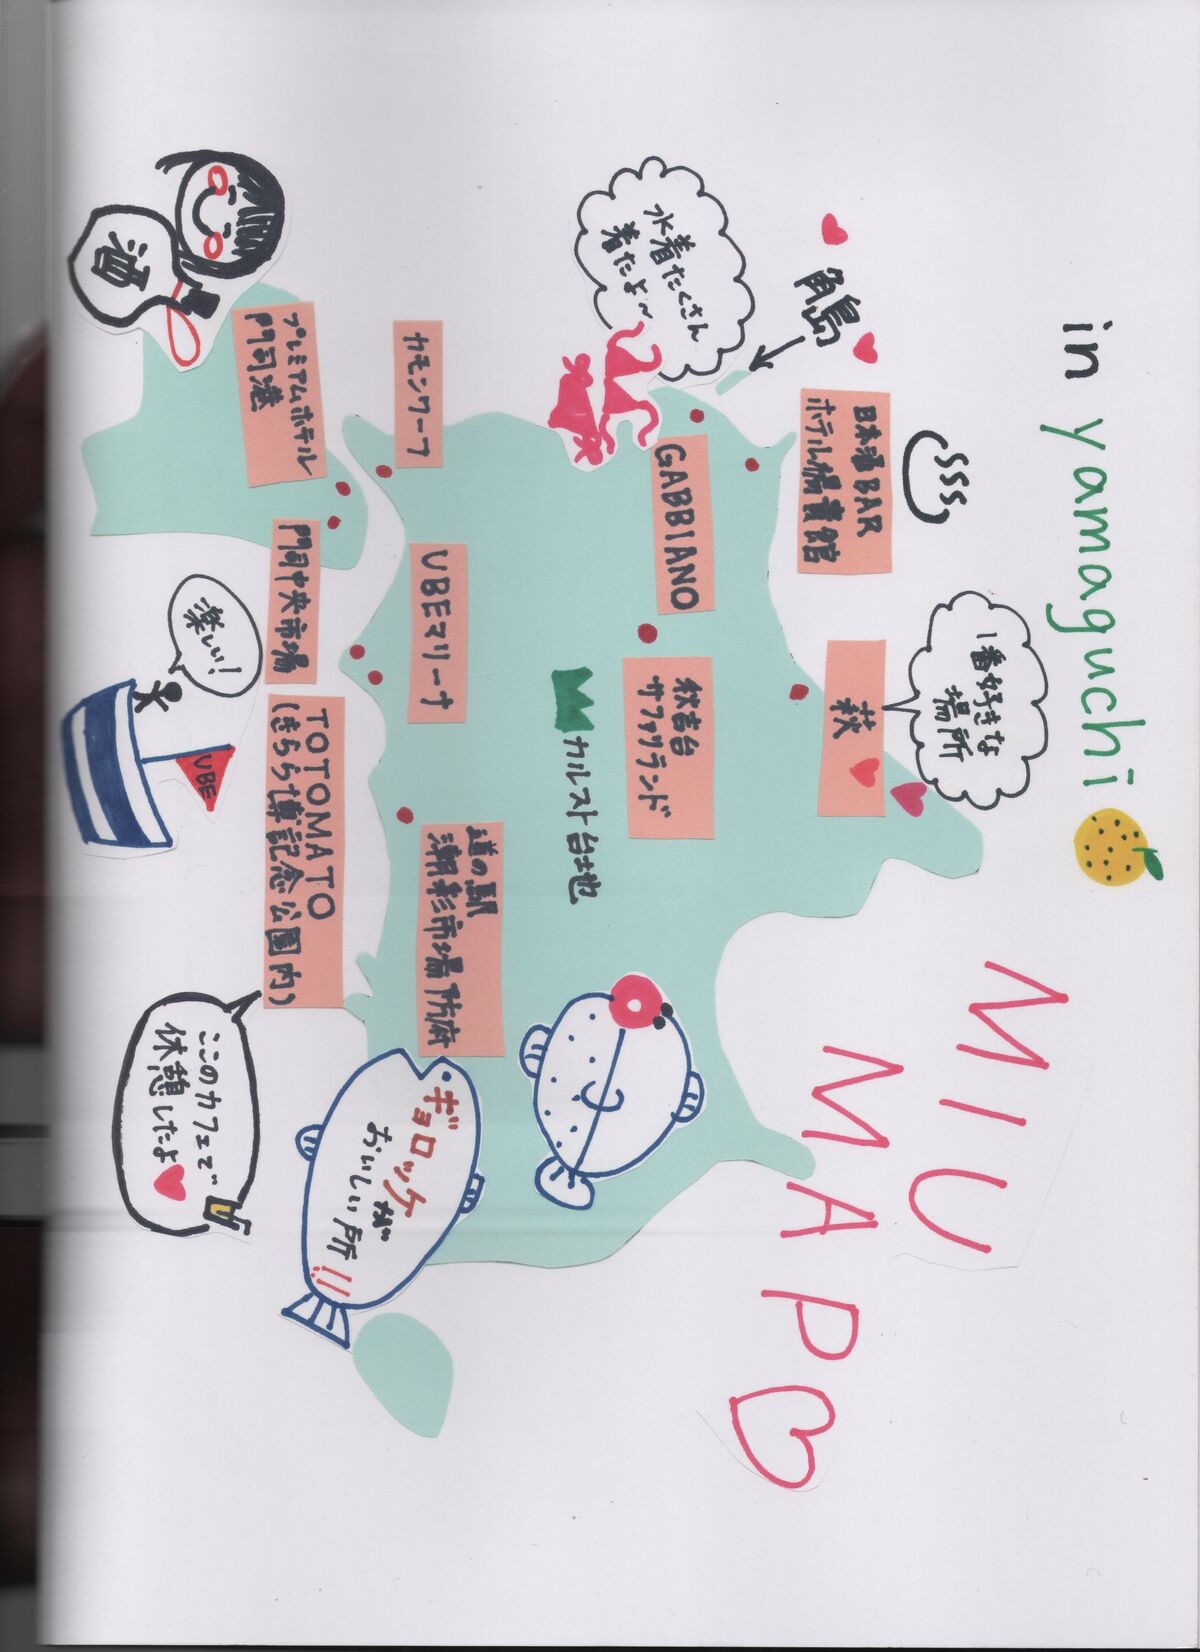 in yamaguchi
MIU
MAP
角島
水着たくさん
着たよ〜
日本酒BAR
ホテル楊貴館
1番好きな
場所
萩
GABBIANO
秋吉台
サファリランド
カルスト台地
カモンワーフ
UBEマリーナ
道の駅
潮彩市場防府
プレミアムホテル
門司港
門司中央市場
TOTOMATO
(きらら博記念公園内)
酒
楽しい!
UBE
ここのカフェで
休憩したよ
ギョロッケが
おいしい所!!!